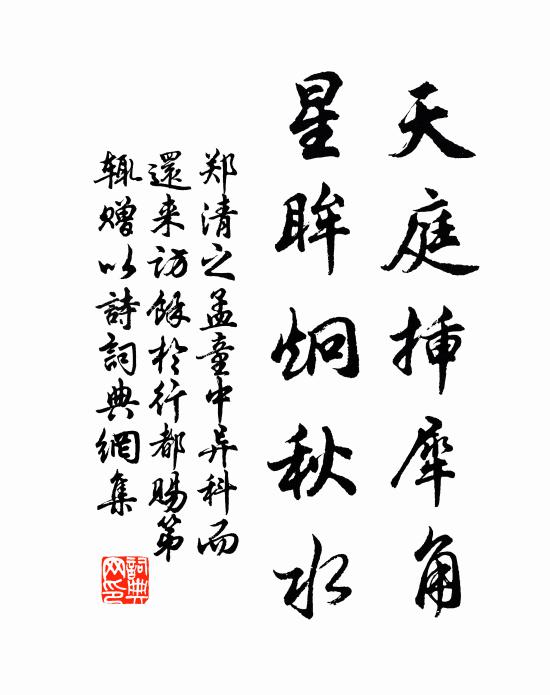 天庭插犀角
星眸炯秋水
郑清之孟童中异科而
還来访馀於行都赐第
辄赠以詩詞典網集
詞典
网印